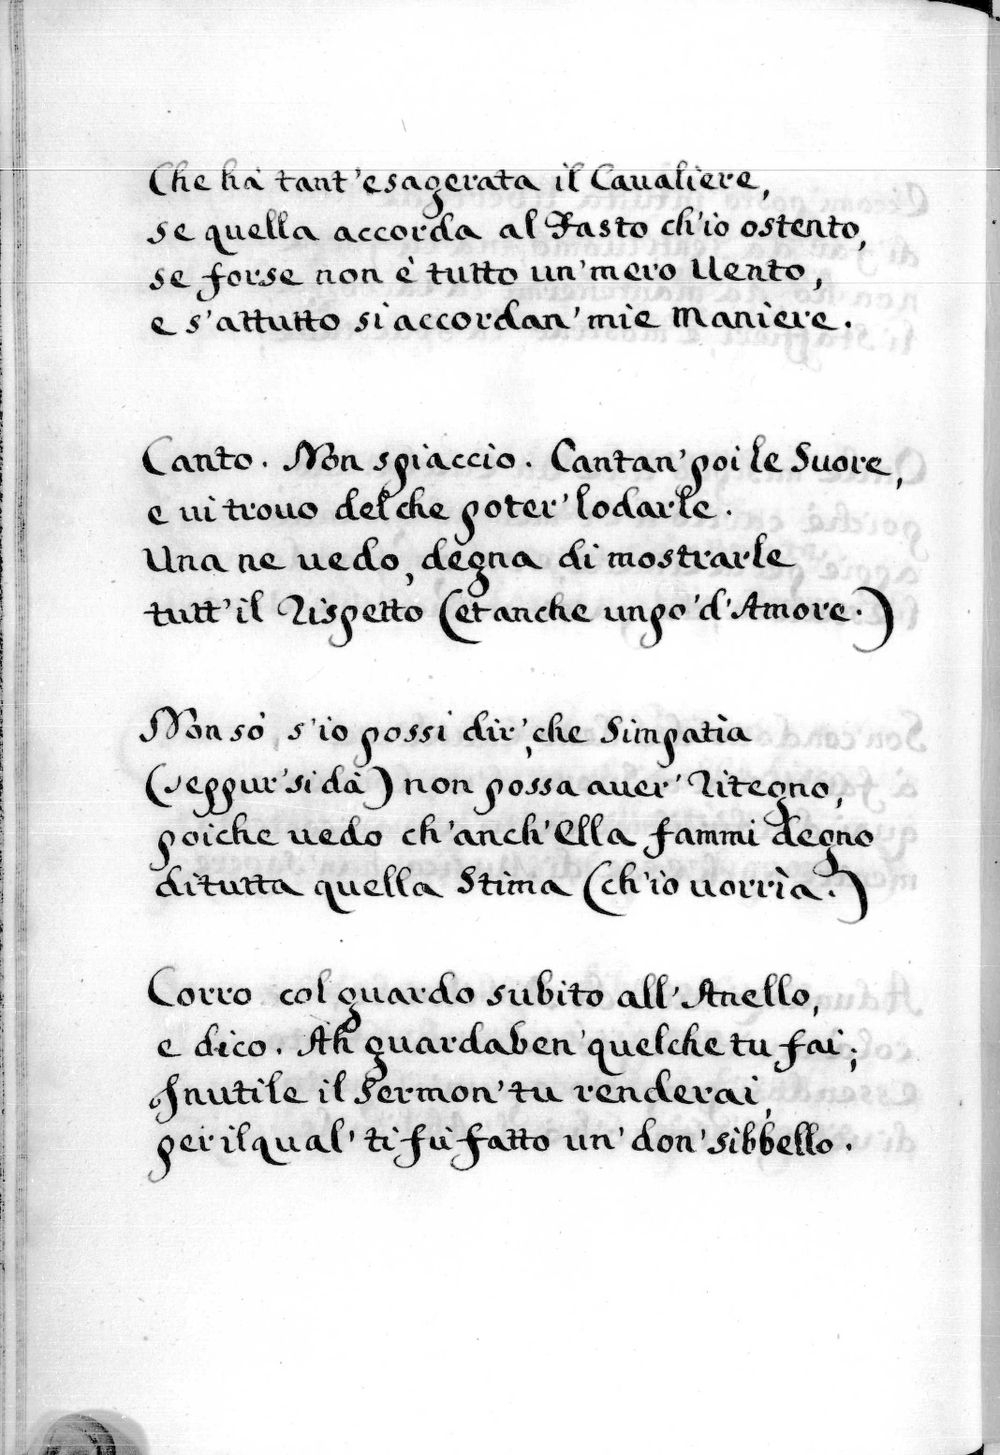 Che hà tant'esagerata il Caualiere,
se quella accorda al Fasto ch'io ostento,
se forse non è tutto un'mero Uento,
e s'attutto si accordan'mie Maniere.
Canto. Non spiaccio. Cantan'poi le Suore,
e ui trouo delche poter'lodarle.
Una ne uedo, degna di mostrarle
tutt'il Rispetto (et anche unpo'd'Amore.)
Non sò, s'io possi dir', che Simpatìa
(seppur'si dà) non possa auer'Ritegno,
poiche uedo ch'anch'Ella fammi degno
ditutta quella Stima (ch'io uorrìa.)
Corro col guardo subito all'Anello,
e dico. Ah guardaben'quelche tu fai;
Inutile il Sermon'tu renderai,
per ilqual'ti fù fatto un'don'sibbello.